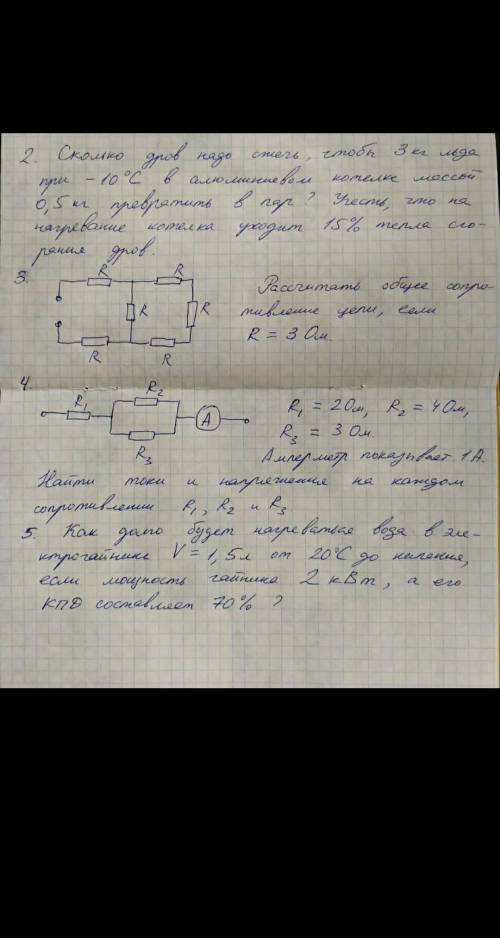 2. Сколько дров надо сжечь, чтобы 3 кг льда
при -10°С в алюминиевом котелке массой
0,5 кг превратить в пар? Учесть, что на
нагревание котелка уходит 15% тепла сго-
рания дров.
3. R R
R R
R R
Рассчитать общее сопро-
тивление цепи, если
R = 3 Ом.
4. R1 R2 R3 A
R1 = 2 Ом, R2 = 4 Ом,
R3 = 3 Ом.
Амперметр показывает 1А.
Найти токи и напряжения на каждом
сопротивлении R1, R2 и R3
5. Как долго будет нагреваться вода в эле-
ктрочайнике V = 1,5 л от 20°С до кипения,
если мощность чайника 2 кВт, а его
КПД составляет 70%?